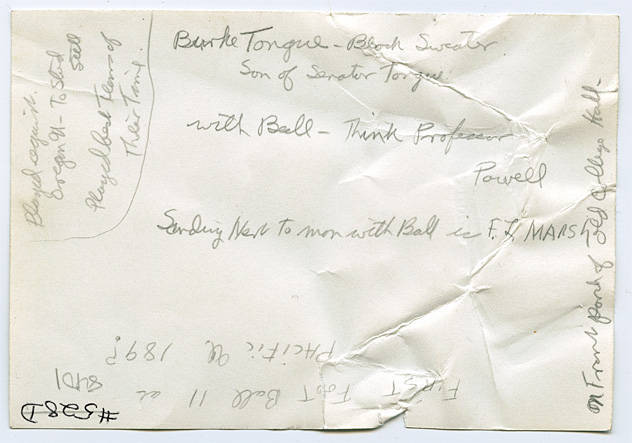 Burke Tongue - Block Sweater
Son of Senator Tongue.
with Ball - Think Professor
Powell
Standing Next to man with Ball is F. L. MARSH
on Front porch of Old College Hall -
Played against.
Oregon U - To Stud
Still
Played best Teams of
Their Time.
FIRST FOOT Ball 11 at
PACIFIC U. 189?
8401
#528D